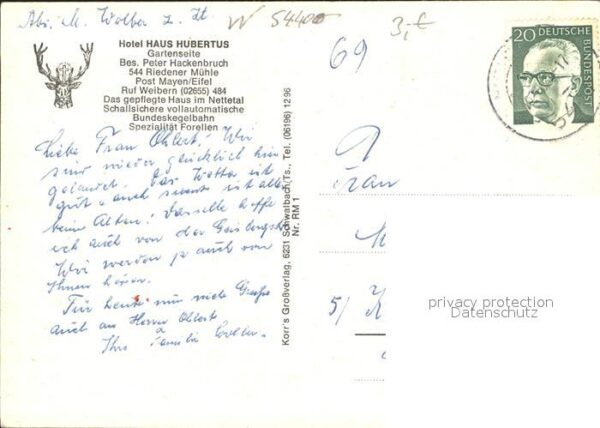 Abs. M. Wolber z. Zt.
W 54400
3,- €
69
Hotel HAUS HUBERTUS
Gartenseite
Bes. Peter Hackenbruch
544 Riedener Mühle
Post Mayen/Eifel
Ruf Weibern (02655) 484
Das gepflegte Haus im Nettetal
Schallsichere vollautomatische
Bundeskegelbahn
Spezialität Forellen
Liebe Frau Ohlert! Wir
sind wieder glücklich hier
gelandet. Das Wetter ist
gut u. auch sonst ist alles
beim Alten! Dasselbe hoffe
ich auch von der
Wir werden ja auch von
Ihnen hören.
Für heute nun viele Grüße
auch an Herrn Ohlert
Ihre Familie Wolber.
Korr's Großverlag, 6231 Schwalbach/Ts., Tel. (06196) 12 96
Nr. RM 1
20 DEUTSCHE
BUNDESPOST
Frau
M
5/
privacy protection
Datenschutz